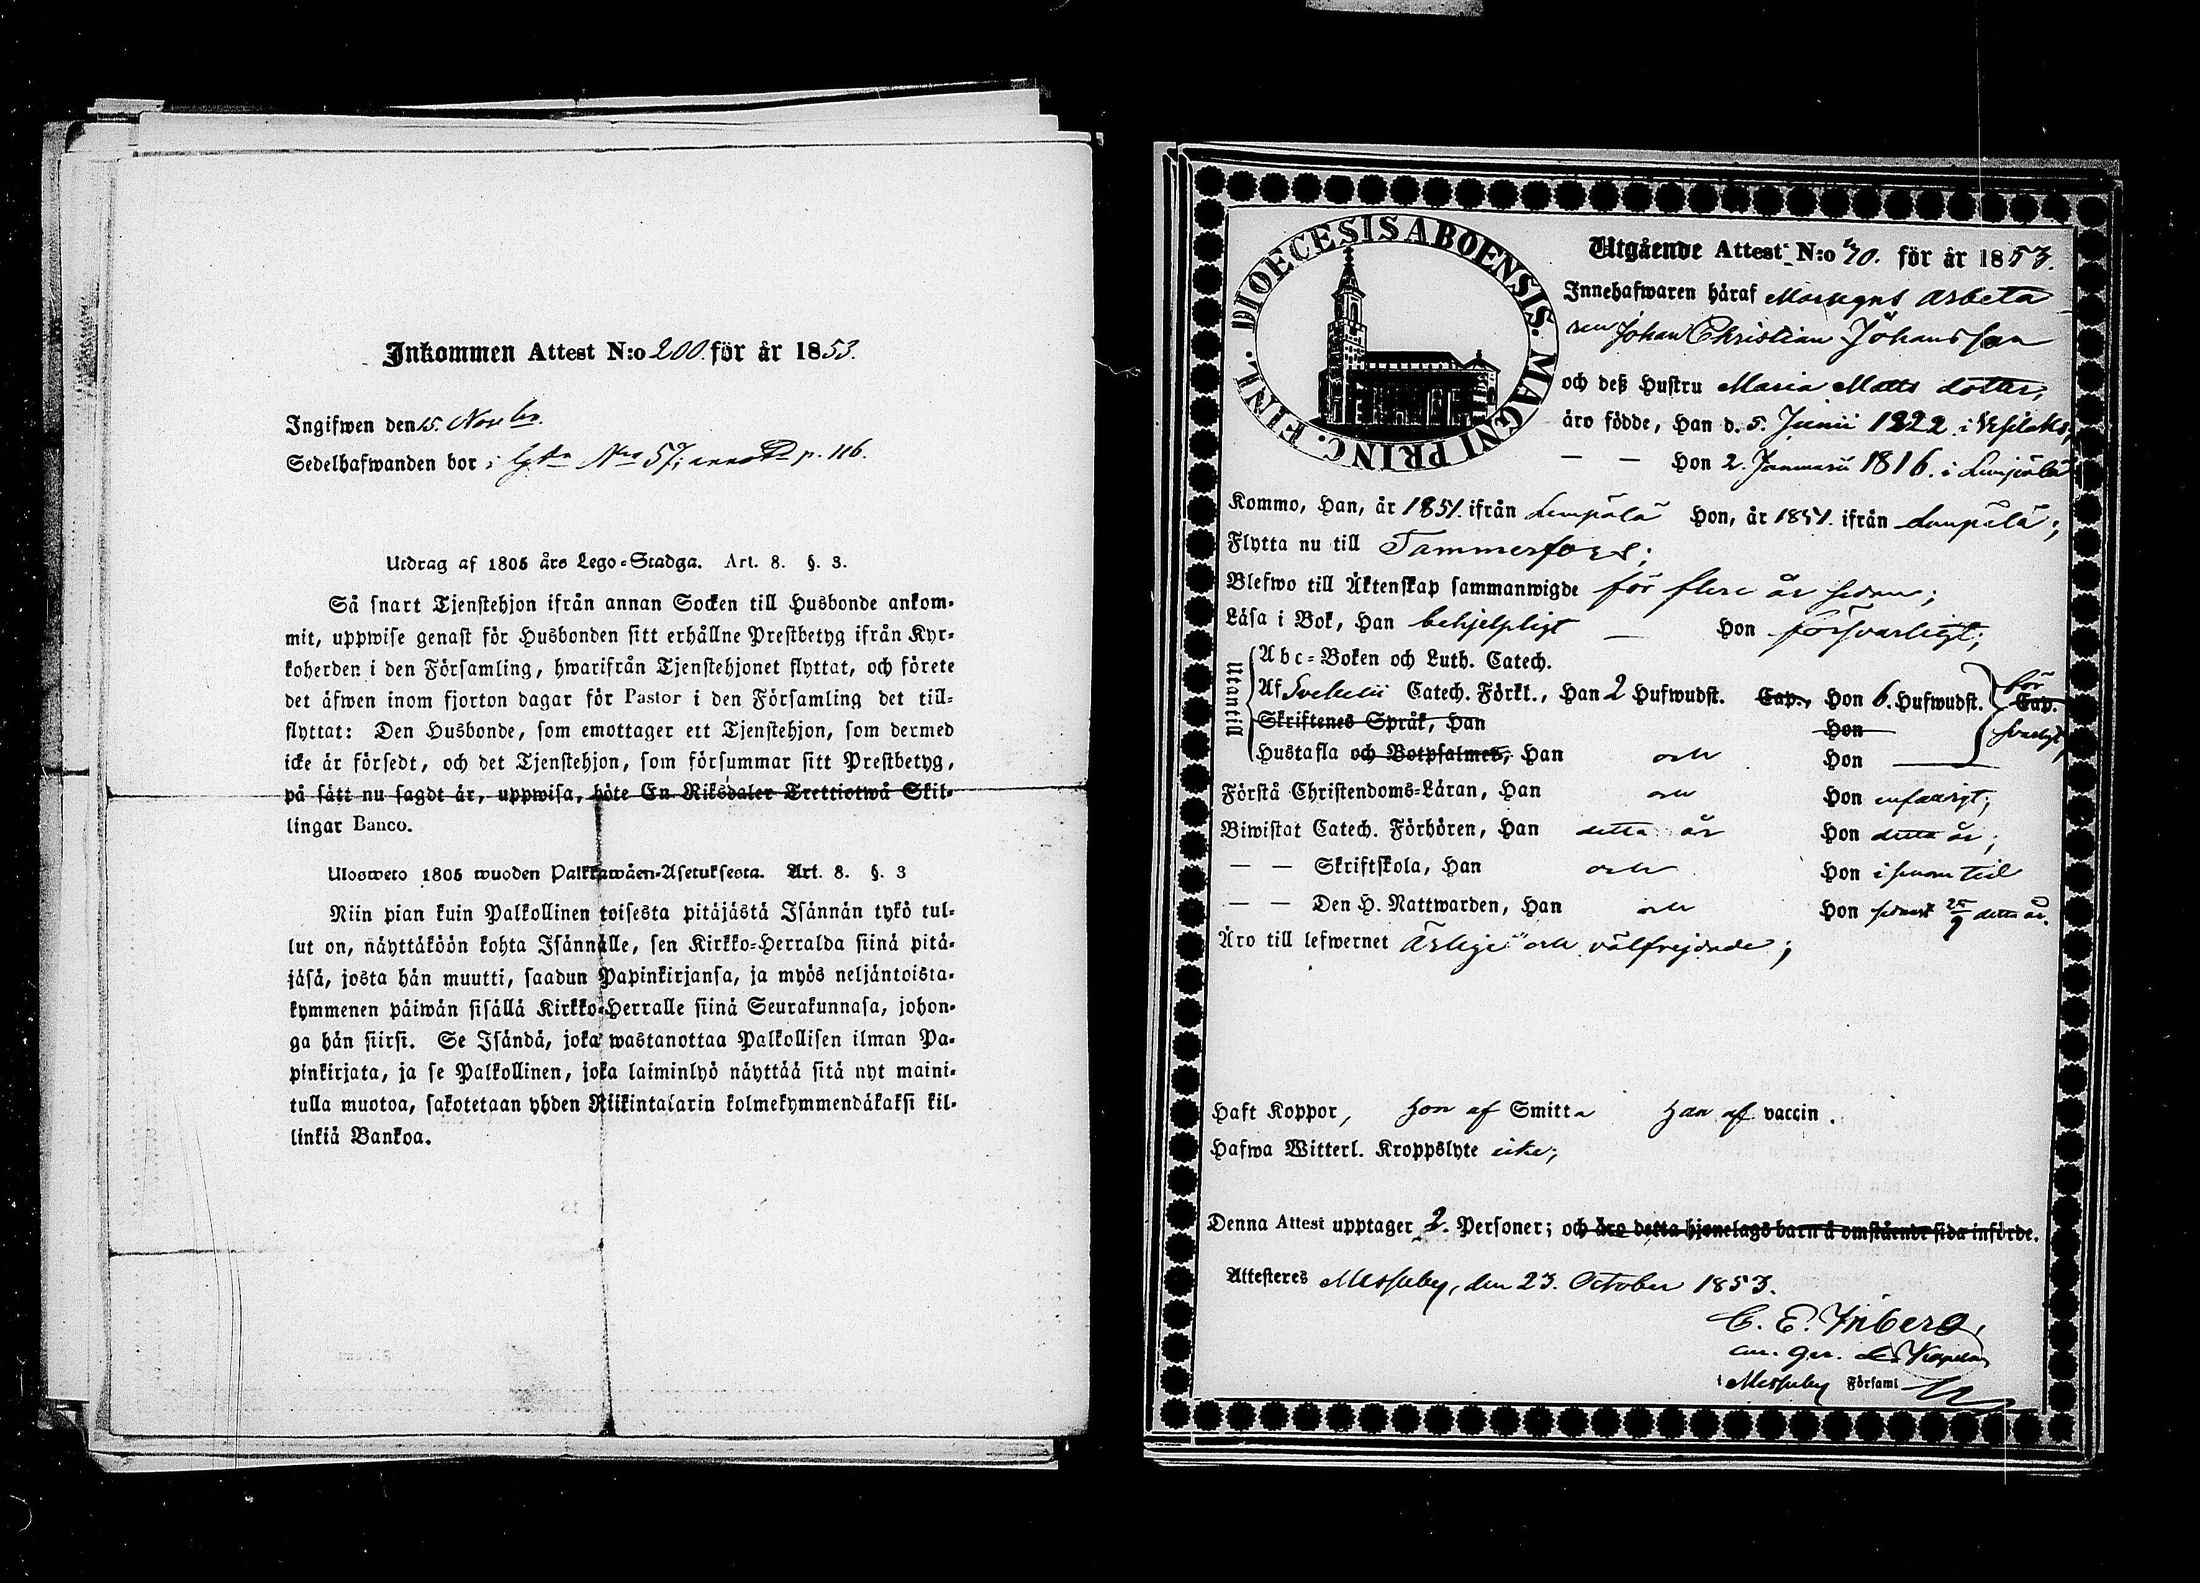 Inkommen Attest N:o 200. för år 1853.
Ingifwen den 15. Novbr.
Sedelhafwanden bor i Nro 57; p. 116.
Utdrag af 1805 års Lego-Stadga. Art. 8. §. 3.
Så snart Tjenstehjon ifrån annan Socken till Husbonde ankom-
mit, uppwise genast för Husbonden sitt erhållne Prestbetyg ifrån Kyr-
koherden i den Församling, hwarifrån Tjenstehjonet flyttat, och förete
det äfwen inom fjorton dagar för Pastor i den Församling det till-
flyttat: Den Husbonde, som emottager ett Tjenstehjon, som dermed
icke är försedt, och det Tjenstehjon, som försummar sitt Prestbetyg,
på sätt nu sagdt är, uppwisa, böte En Riksdaler Trettiotwå Skil-
lingar Banco.
Ulosweto 1805 wuoden Palkkawäen-Asetuksesta. Art. 8. §. 3
Niin pian kuin Palkollinen toisesta pitäjästä Isännän tykö tul-
lut on, näyttäköön kohta Isännälle, sen Kirkko-Herralda siinä pitä-
jäsä, josta hän muutti, saadun Papinkirjansa, ja myös neljäntoista-
kymmenen päiwän sisällä Kirkko-Herralle siinä Seurakunnasa, johon-
ga hän siirsi. Se Isändä, joka wastanottaa Palkollisen ilman Pa-
pinkirjata, ja se Palkollinen, joka laiminlyö näyttää sitä nyt maini-
tulla muotoa, sakotetaan yhden Riikintalarin kolmekymmendäkaksi kil-
linkiä Bankoa.
DIOECESIS ABOENSIS. MAGNI PRINC. FINL.
Utgående Attest N:o 70. för år 1853.
Innehafwaren häraf arbeta
ren Johan Christian Johansson
och deß Hustru Maria Matts dotter,
äro födde, Han d. 5. Junii 1822. i Vesilaks,
— — Hon 2. Januarii 1816. i Lempälä
Kommo, Han, år 1851. ifrån Lempälä Hon, år 1851. ifrån Lempälä;
Flytta nu till Tammerfors;
Blefwo till Äktenskap sammanwigde för flere år sedan;
Läsa i Bok, Han behjelpligt — Hon försvarligt;
Utantill
Abc-Boken och Luth. Catech.
Af Svebelii Catech. Förkl., Han 2 Hufwudst. Cap., Hon 6. Hufwudst. Cap. för
svarligt
Skriftenes Språk, Han Hon
Hustafla och Botpsalmer, Han och Hon
Förstå Christendoms-Läran, Han och Hon enfaldigt;
Biwistat Catech. Förhören, Han detta år Hon detta år;
— — Skriftskola, Han och Hon i sinom tid
— — Den H. Nattwarden, Han och Hon senast 25/9 detta år.
Äro till lefwernet ärlige och välfrejdade;
Haft Koppor, Hon af Smitta Han af vaccin.
Hafwa Witterl. Kroppslyte icke;
Denna Attest upptager 2. Personer; och äro detta hjonelags barn å omstående sida införde.
Attesteres Messuby, den 23. October 1853.
C. E. Inberg,
Kapellan
i Messuby Församl